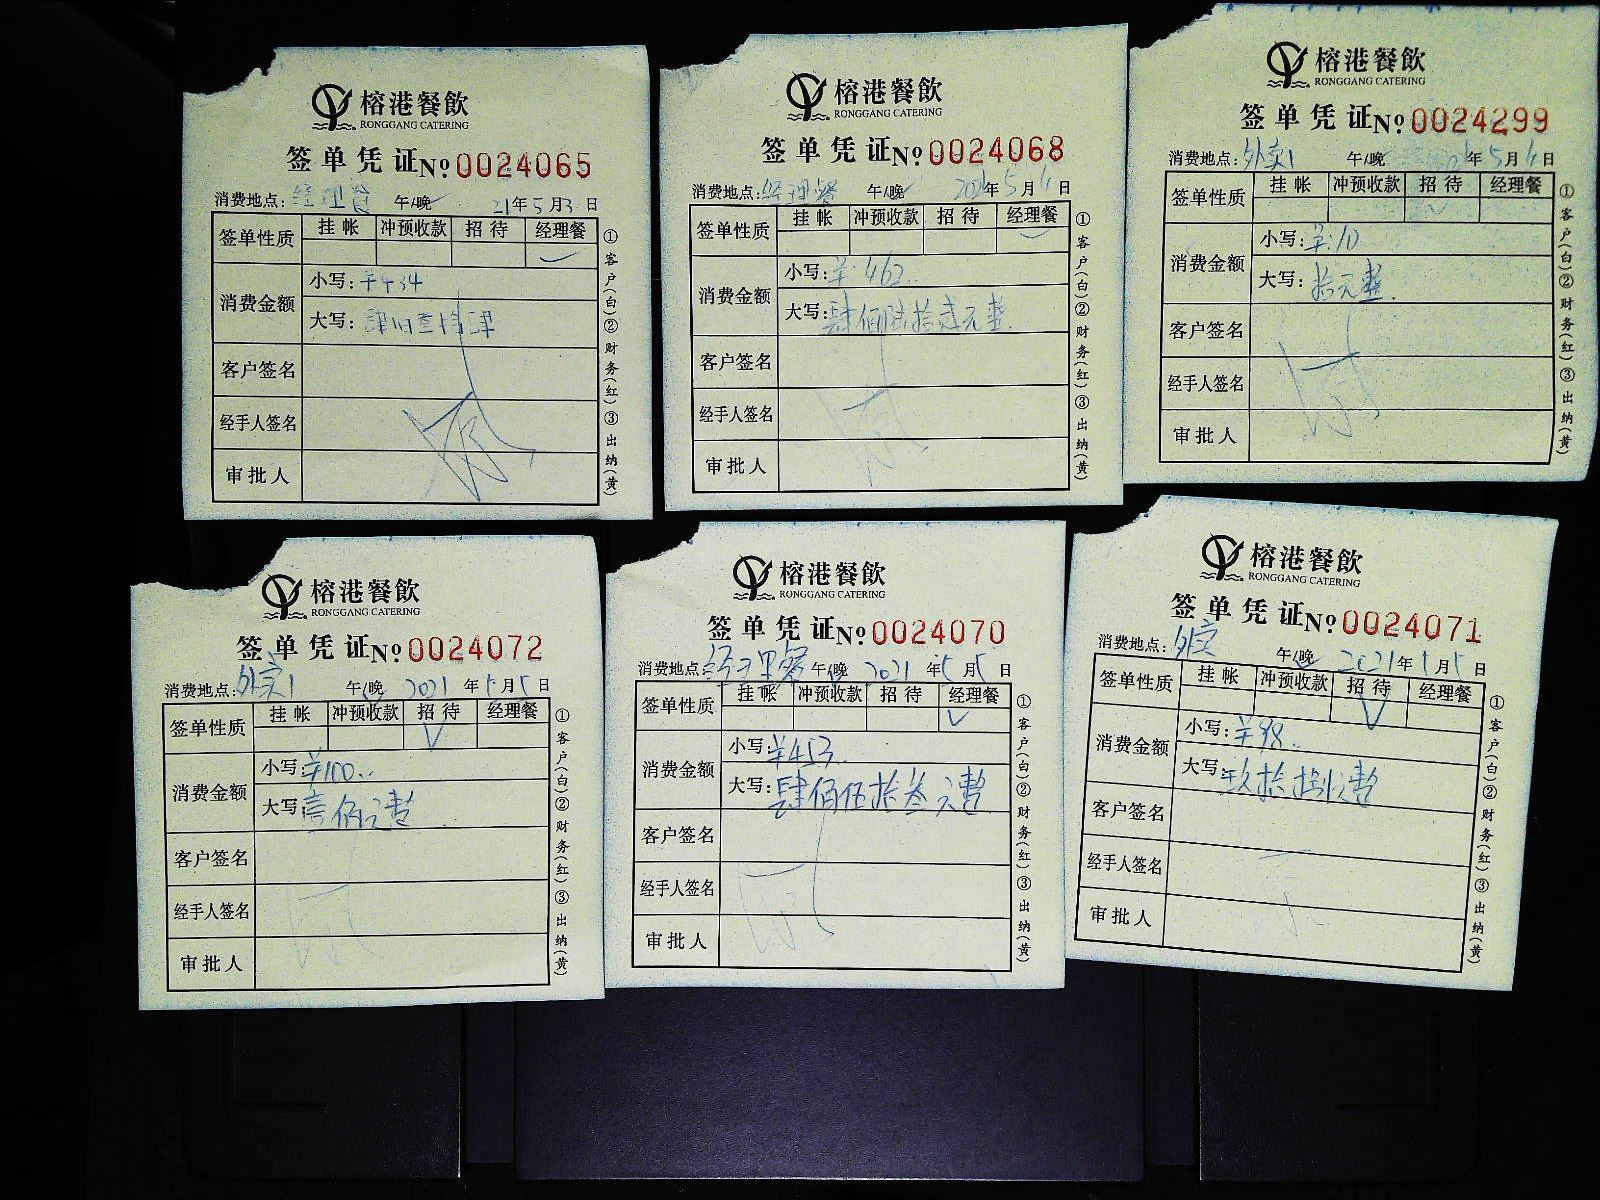 榕港餐飲
RONGGANG CATERING
签单凭证 No 0024065
消费地点: 经理餐 午/晚 21年5月3日
签单性质 挂帐 冲预收款 招待 经理餐
消费金额 小写: ¥434
大写: 肆佰叁拾肆
客户签名
经手人签名
审批人
①客户(白)②财务(红)③出纳(黄)
榕港餐飲
RONGGANG CATERING
签单凭证 No 0024068
消费地点: 经理餐 午/晚 2021年5月4日
签单性质 挂帐 冲预收款 招待 经理餐
消费金额 小写: ¥462..
大写: 肆佰陆拾贰元整.
客户签名
经手人签名
审批人
①客户(白)②财务(红)③出纳(黄)
榕港餐飲
RONGGANG CATERING
签单凭证 No 0024299
消费地点: 外卖1 午/晚 年5月4日
签单性质 挂帐 冲预收款 招待 经理餐
消费金额 小写: ¥:10
大写: 拾元整.
客户签名
经手人签名
审批人
①客户(白)②财务(红)③出纳(黄)
榕港餐飲
RONGGANG CATERING
签单凭证 No 0024072
消费地点: 外卖1 午/晚 2021年5月5日
签单性质 挂帐 冲预收款 招待 经理餐
消费金额 小写: ¥100..
大写: 壹佰元整
客户签名
经手人签名
审批人
①客户(白)②财务(红)③出纳(黄)
榕港餐飲
RONGGANG CATERING
签单凭证 No 0024070
消费地点: 经理餐 午/晚 2021年5月5日
签单性质 挂帐 冲预收款 招待 经理餐
消费金额 小写: ¥453..
大写: 肆佰伍拾叁元整
客户签名
经手人签名
审批人
①客户(白)②财务(红)③出纳(黄)
榕港餐飲
RONGGANG CATERING
签单凭证 No 0024071
消费地点: 外卖 午/晚 2021年5月5日
签单性质 挂帐 冲预收款 招待 经理餐
消费金额 小写: ¥98..
大写: 玖拾捌元整
客户签名
经手人签名
审批人
①客户(白)②财务(红)③出纳(黄)